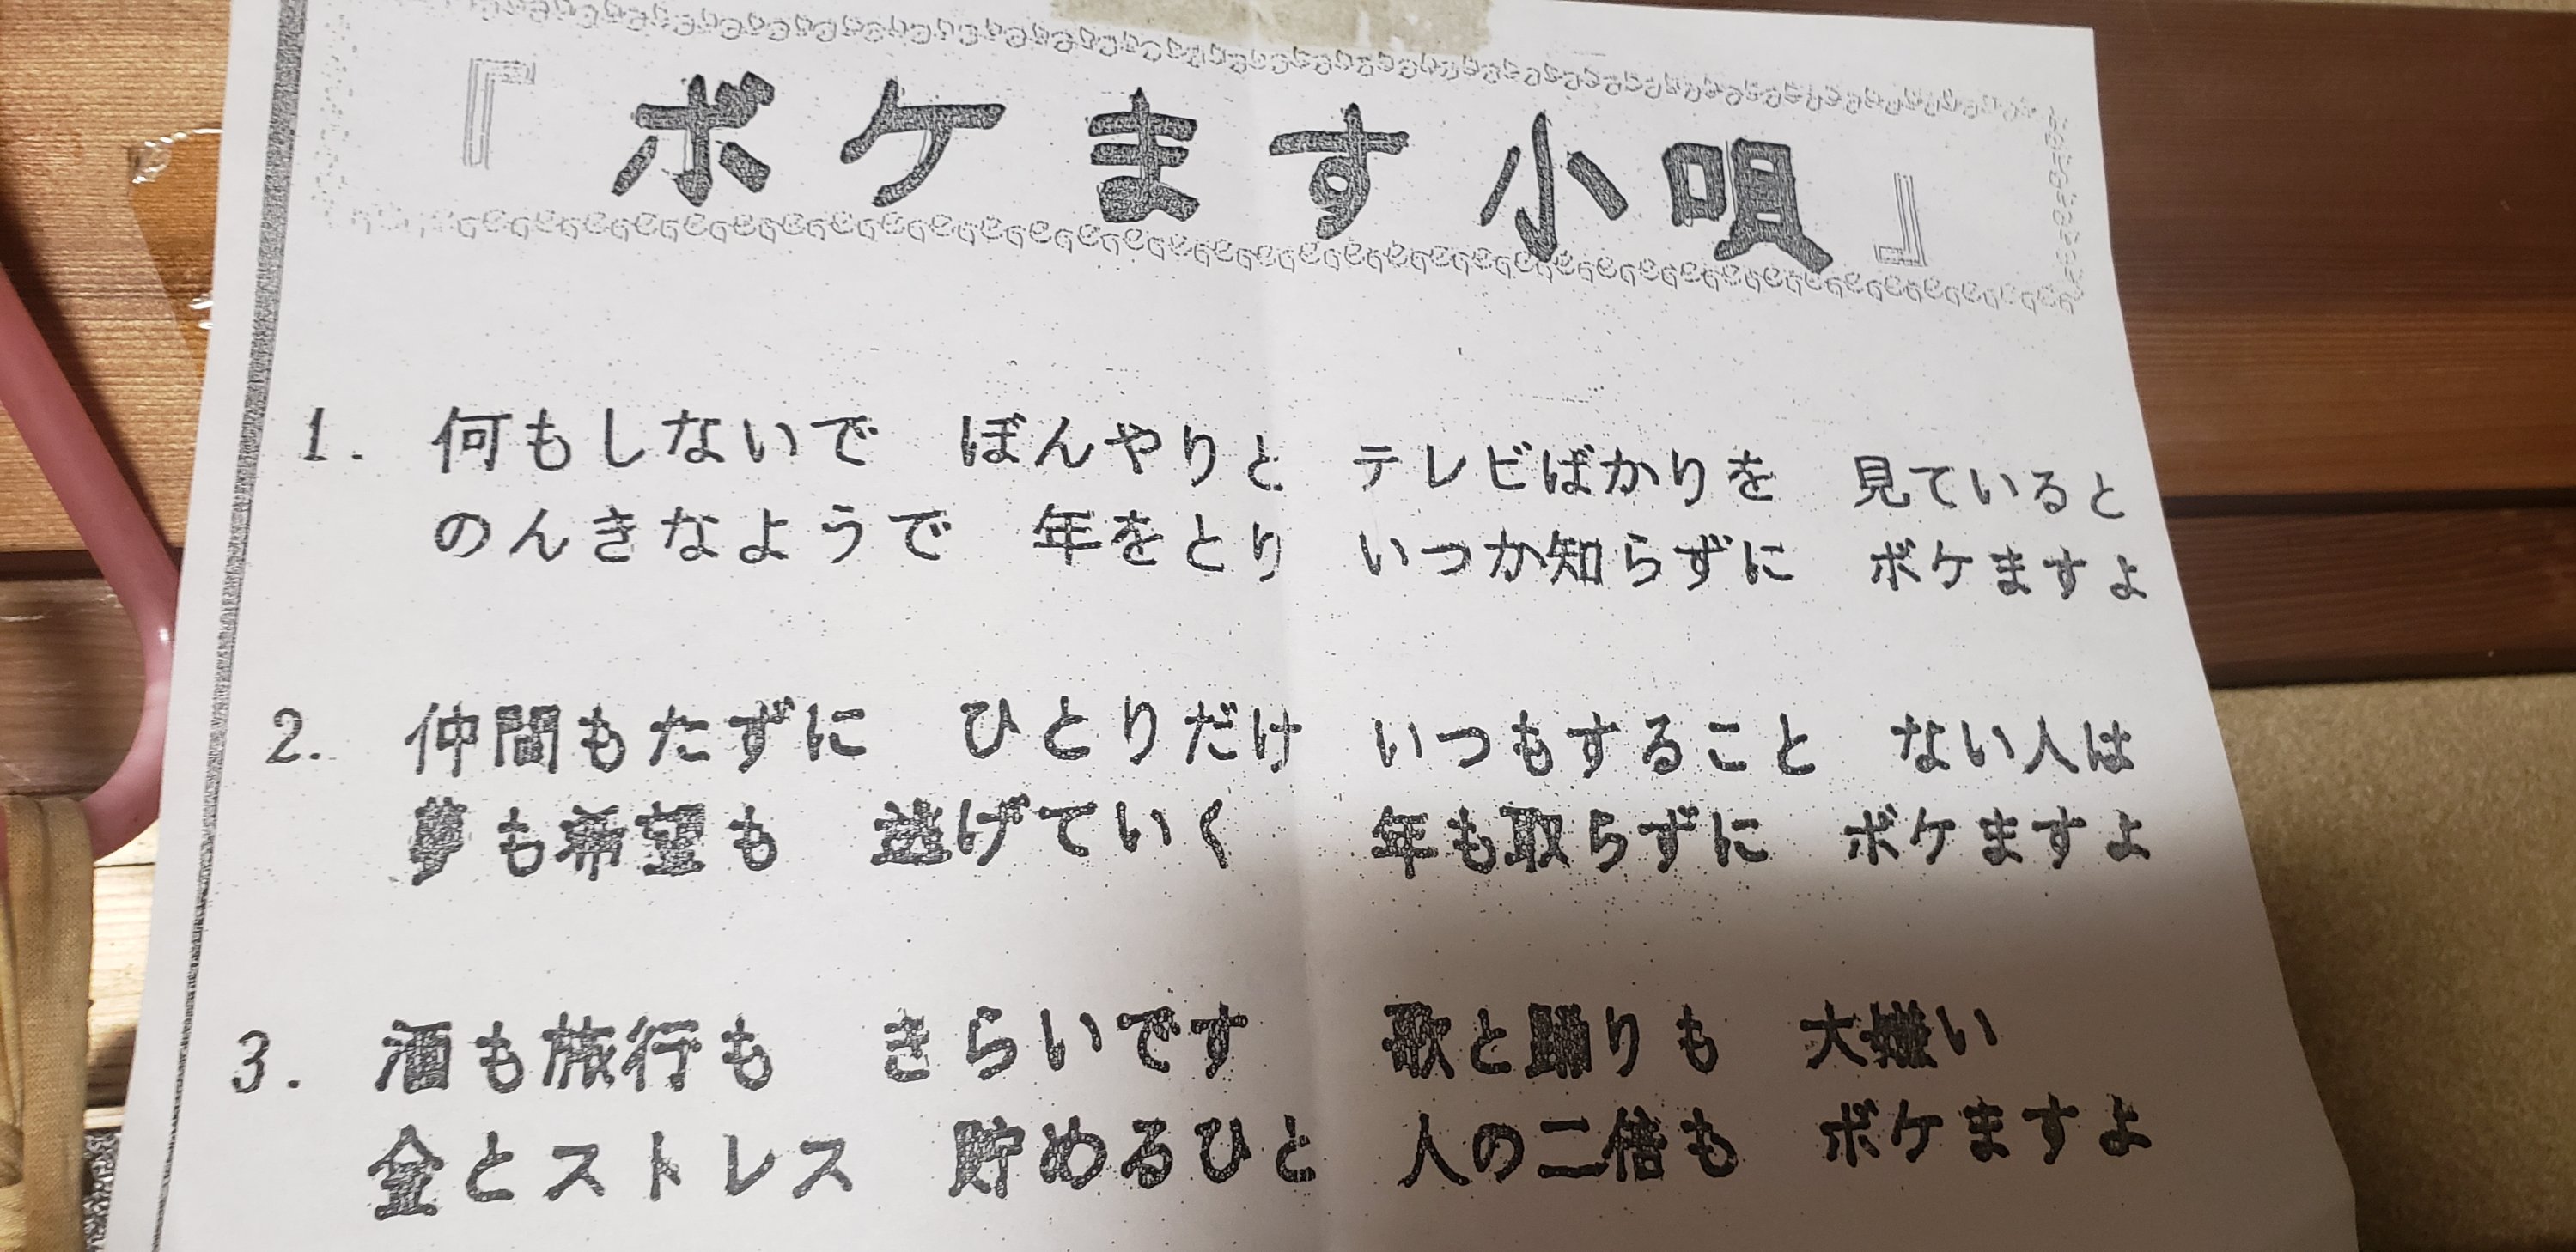 『ボケます小唄』
1. 何もしないで ぼんやりと テレビばかりを 見ていると
のんきなようで 年をとり いつか知らずに ボケますよ
2. 仲間もたずに ひとりだけ いつもすること ない人は
夢も希望も 逃げていく 年も取らずに ボケますよ
3. 酒も旅行も きらいです 歌と踊りも 大嫌い
金とストレス 貯めるひと 人の二倍も ボケますよ